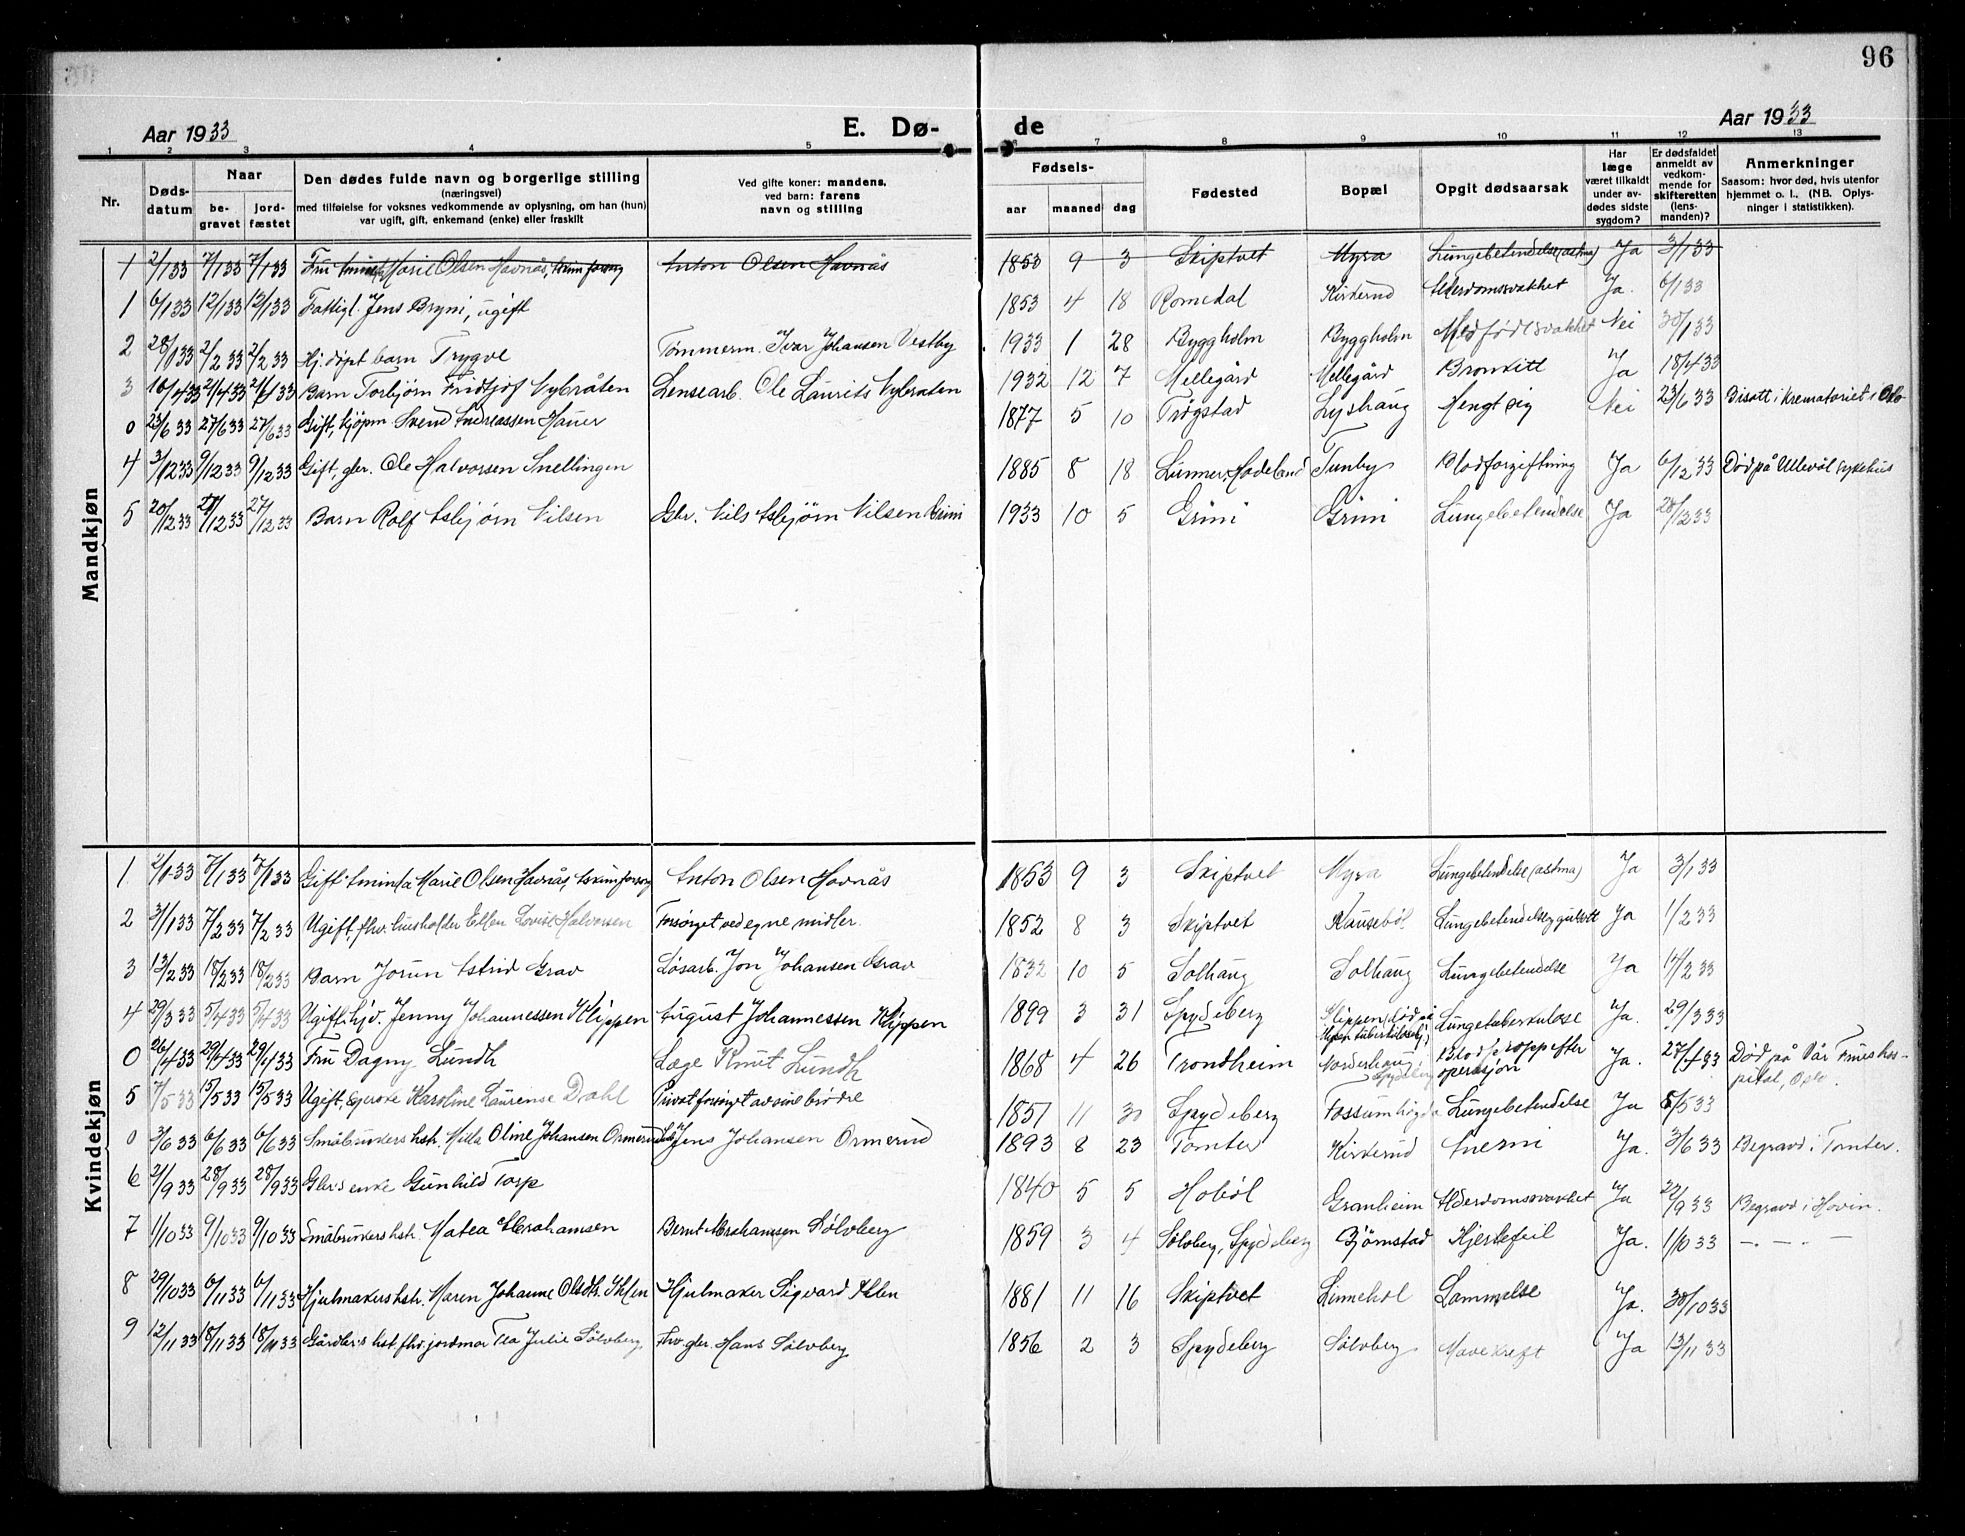 96
Aar 1933
E. Dø-
de
Aar 1933
1 2 3 4 5 6 7 8 9 10 11 12 13
Nr.
Døds-
datum
Naar
be-
gravet
jord-
fæstet
Den dødes fulde navn og borgerlige stilling
(næringsvei)
med tilføielse for voksnes vedkommende av oplysning, om han (hun)
var ugift, gift, enkemand (enke) eller fraskilt
Ved gifte koner: mandens,
ved barn: farens
navn og stilling
Fødsels-
aar maaned dag
Fødested
Bopæl
Opgit dødsaarsak
Har
læge
været tilkaldt
under av-
dødes sidste
sygdom?
Er dødsfaldet
anmeldt av
vedkom-
mende for
skifteretten
(lens-
manden)?
Anmerkninger
Saasom: hvor død, hvis utenfor
hjemmet o. l., (NB. Oplys-
ninger i statistikken).
Mandkjøn
1 2/1 33 7/1 33 7/1 33 Fru Marie Olsen Havnås, Anton Olsen Havnås 1853 9 3 Skiptvet Myra Lungebetendelse (astma) Ja 3/1 33
1 6/1 33 12/1 33 12/1 33 Fattigl. Jens Bryni, ugift 1853 4 18 Romedal Kirkerud Alderdomssvakhet Ja. 6/1 33
2 28/1 33 2/2 33 2/2 33 Hj. døpt barn Trygve Tømmerm. Ivar Johansen Vestby 1933 1 28 Byggholm Byggholm Medfødt svakhet Nei 30/1 33
3 16/4 33 21/4 33 21/4 33 Barn Torbjørn Fridtjof Nybråten Lensearb. Ole Laurits Nybråten 1932 12 7 Mellegård Mellegård Bronkitt Ja 18/4 33
0 23/6 33 27/6 33 27/6 33 Gift, kjøpm. Svend Andreassen Hauer 1877 5 10 Trøgstad Lyshaug Hengt sig Nei 23/6 33 Bisatt i krematoriet i Oslo
4 3/12 33 9/12 33 9/12 33 Gift, gbr. Ole Halvorsen Snellingen 1885 8 18 Lunner, Hadeland Tunby Blodforgiftning Ja 6/12 33 Død på Ullevål sykehus
5 20/12 33 27/12 33 27/12 33 Barn Rolf Asbjørn Nilsen Gbr. Nils Asbjørn Nilsen Grini 1933 10 5 Grini Grini Lungebetendelse Ja 20/12 33
Kvindekjøn
1 2/1 33 7/1 33 7/1 33 Gift Aminda Marie Olsen Havnås, Askim forsorg Anton Olsen Havnås 1853 9 3 Skiptvet Myra Lungebetendelse (astma) Ja 3/1 33
2 31/1 33 7/2 33 7/2 33 Ugift, fhv. husholder Ellen Lovise Halvorsen Forsørget ved egne midler. 1852 8 3 Skiptvet Knusebøl Lungebetendelse, gulsott Ja 1/2 33
3 13/2 33 18/2 33 18/2 33 Barn Jorun Astrid Grav Løsarb. Jon Johansen Grav 1932 10 5 Solhaug Solhaug Lungebetendelse Ja 14/2 33
4 29/3 33 5/4 33 5/4 33 Ugift hjv. Jenny Johannessen Klippen August Johannessen Klippen 1899 3 31 Spydeberg Klippen, død på Mysen tuberkulosehj. Lungetuberkulose Ja. 29/3 33
0 26/4 33 29/4 33 29/4 33 Fru Dagny Lundh Læge Knut Lundh 1868 4 26 Trondheim Norderhaug Spydeberg Blodpropp efter operasjon Ja. 27/4 33 Død på Vår Frues hos-
pital, Oslo.
5 7/5 33 15/5 33 15/5 33 Ugift, Karoline Laurense Dahl Privat forsørget av sine brødre 1851 11 30 Spydeberg Fossumhøgda Lungebetendelse Ja 8/5 33
0 3/6 33 6/6 33 6/6 33 Småbrukers hstr. Milla Oline Johansen Ormerud Jens Johansen Ormerud 1893 8 23 Tomter Kirkerud Anemi Ja. 3/6 33 Begravd i Tomter.
6 21/9 33 28/9 33 28/9 33 Gbrs enke Gunhild Torp 1840 5 5 Hobøl Granheim Alderdomssvakhet Ja 22/9 33 Begravd i Hovin.
7 1/10 33 9/10 33 9/10 33 Småbrukers hstr. Matea Abrahamsen Bernt Abrahamsen Sølvberg 1859 3 4 Sølvberg, Spydeberg Bjørnstad Hjertefeil Ja. 1/10 33 — . — . —
8 29/10 33 6/11 33 6/11 33 Hjulmakers hstr. Maren Johanne Olsdtr. Hjulmaker Sigvard 1881 11 16 Skiptvet Linnehol Lammelse Ja. 30/10 33
9 12/11 33 18/11 33 18/11 33 Gårdbr.s hst. fhv. jordmor Tea Julie Sølvberg Fhv. gbr. Hans Sølvberg 1856 2 3 Spydeberg Sølvberg Mavekreft Ja 13/11 33